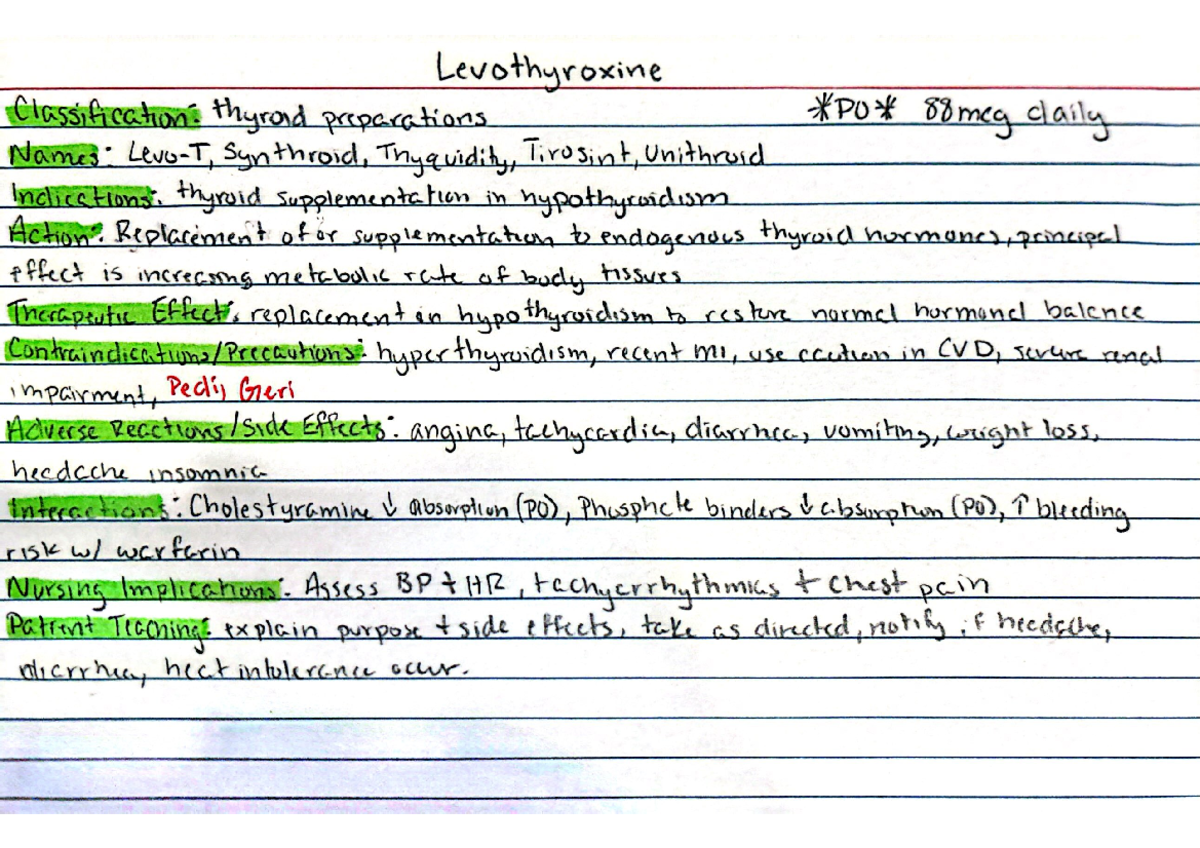 Levothyroxine
Classification: thyroid preparations *PO* 88mcg daily
Names: Levo-T, Synthroid, Thyquidity, Tirosint, Unithroid
Indications: thyroid supplementation in hypothyroidism
Action: Replacement of or supplementation to endogenous thyroid hormones, principal
effect is increasing metabolic rate of body tissues
Therapeutic Effect: replacement in hypothyroidism to restore normal hormonal balance
Contraindications/Precautions: hyperthyroidism, recent MI, use caution in CVD, severe renal
impairment, Pedi, Geri
Adverse Reactions/Side Effects: angina, tachycardia, diarrhea, vomiting, weight loss,
headache insomnia
Interactions: Cholestyramine ↓ absorption (PO), Phosphate binders ↓ absorption (PO), ↑ bleeding
risk w/ warfarin
Nursing Implications: Assess BP + HR, tachyarrhythmias + chest pain
Patient Teaching: explain purpose + side effects, take as directed, notify if headache,
diarrhea, heat intolerance occur.